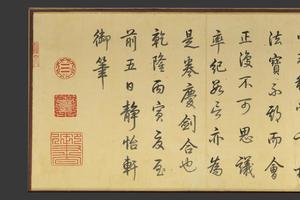 法寶不期而會
正復不可思議
率紀無言亦為
是卷慶劍合也
乾隆丙寅夏至
前五日靜怡軒
御筆